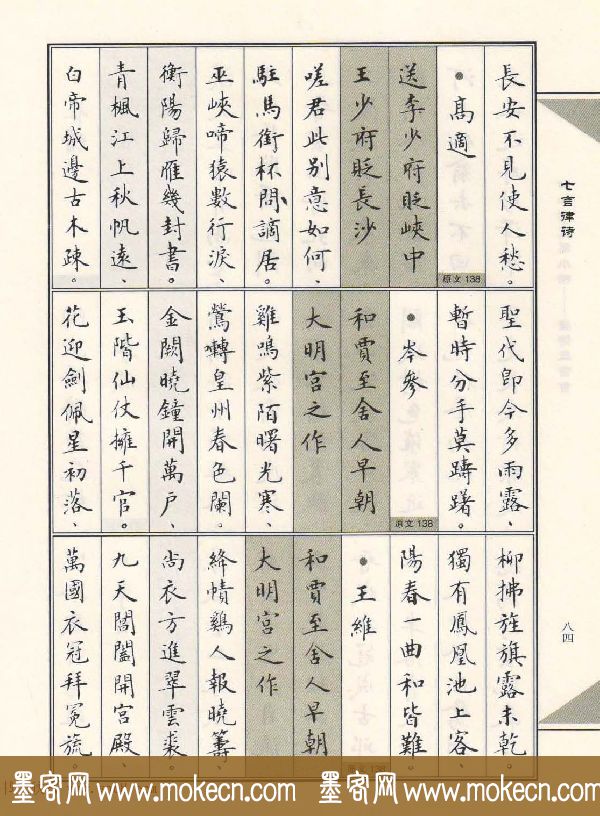 七言律诗
長安不見使人愁。
●高適
送李少府貶峽中
王少府貶長沙
原文138
嗟君此別意如何、
駐馬銜杯問謫居。
巫峽啼猿數行淚、
衡陽歸雁幾封書。
青楓江上秋帆遠、
白帝城邊古木疎。
聖代即今多雨露、
暫時分手莫躊躇。
●岑參
和賈至舍人早朝
大明宮之作
原文138
雞鳴紫陌曙光寒、
鶯囀皇州春色闌。
金闕曉鐘開萬戶、
玉階仙仗擁千官。
花迎劍佩星初落、
柳拂旌旗露未乾。
獨有鳳凰池上客、
陽春一曲和皆難。
●王維
和賈至舍人早朝
大明宮之作
原文138
絳幘鷄人報曉籌、
尚衣方進翠雲裘。
九天閶闔開宮殿、
萬國衣冠拜冕旒。
八四
墨客网 www.mokecn.com 墨客网 www.mokecn.com